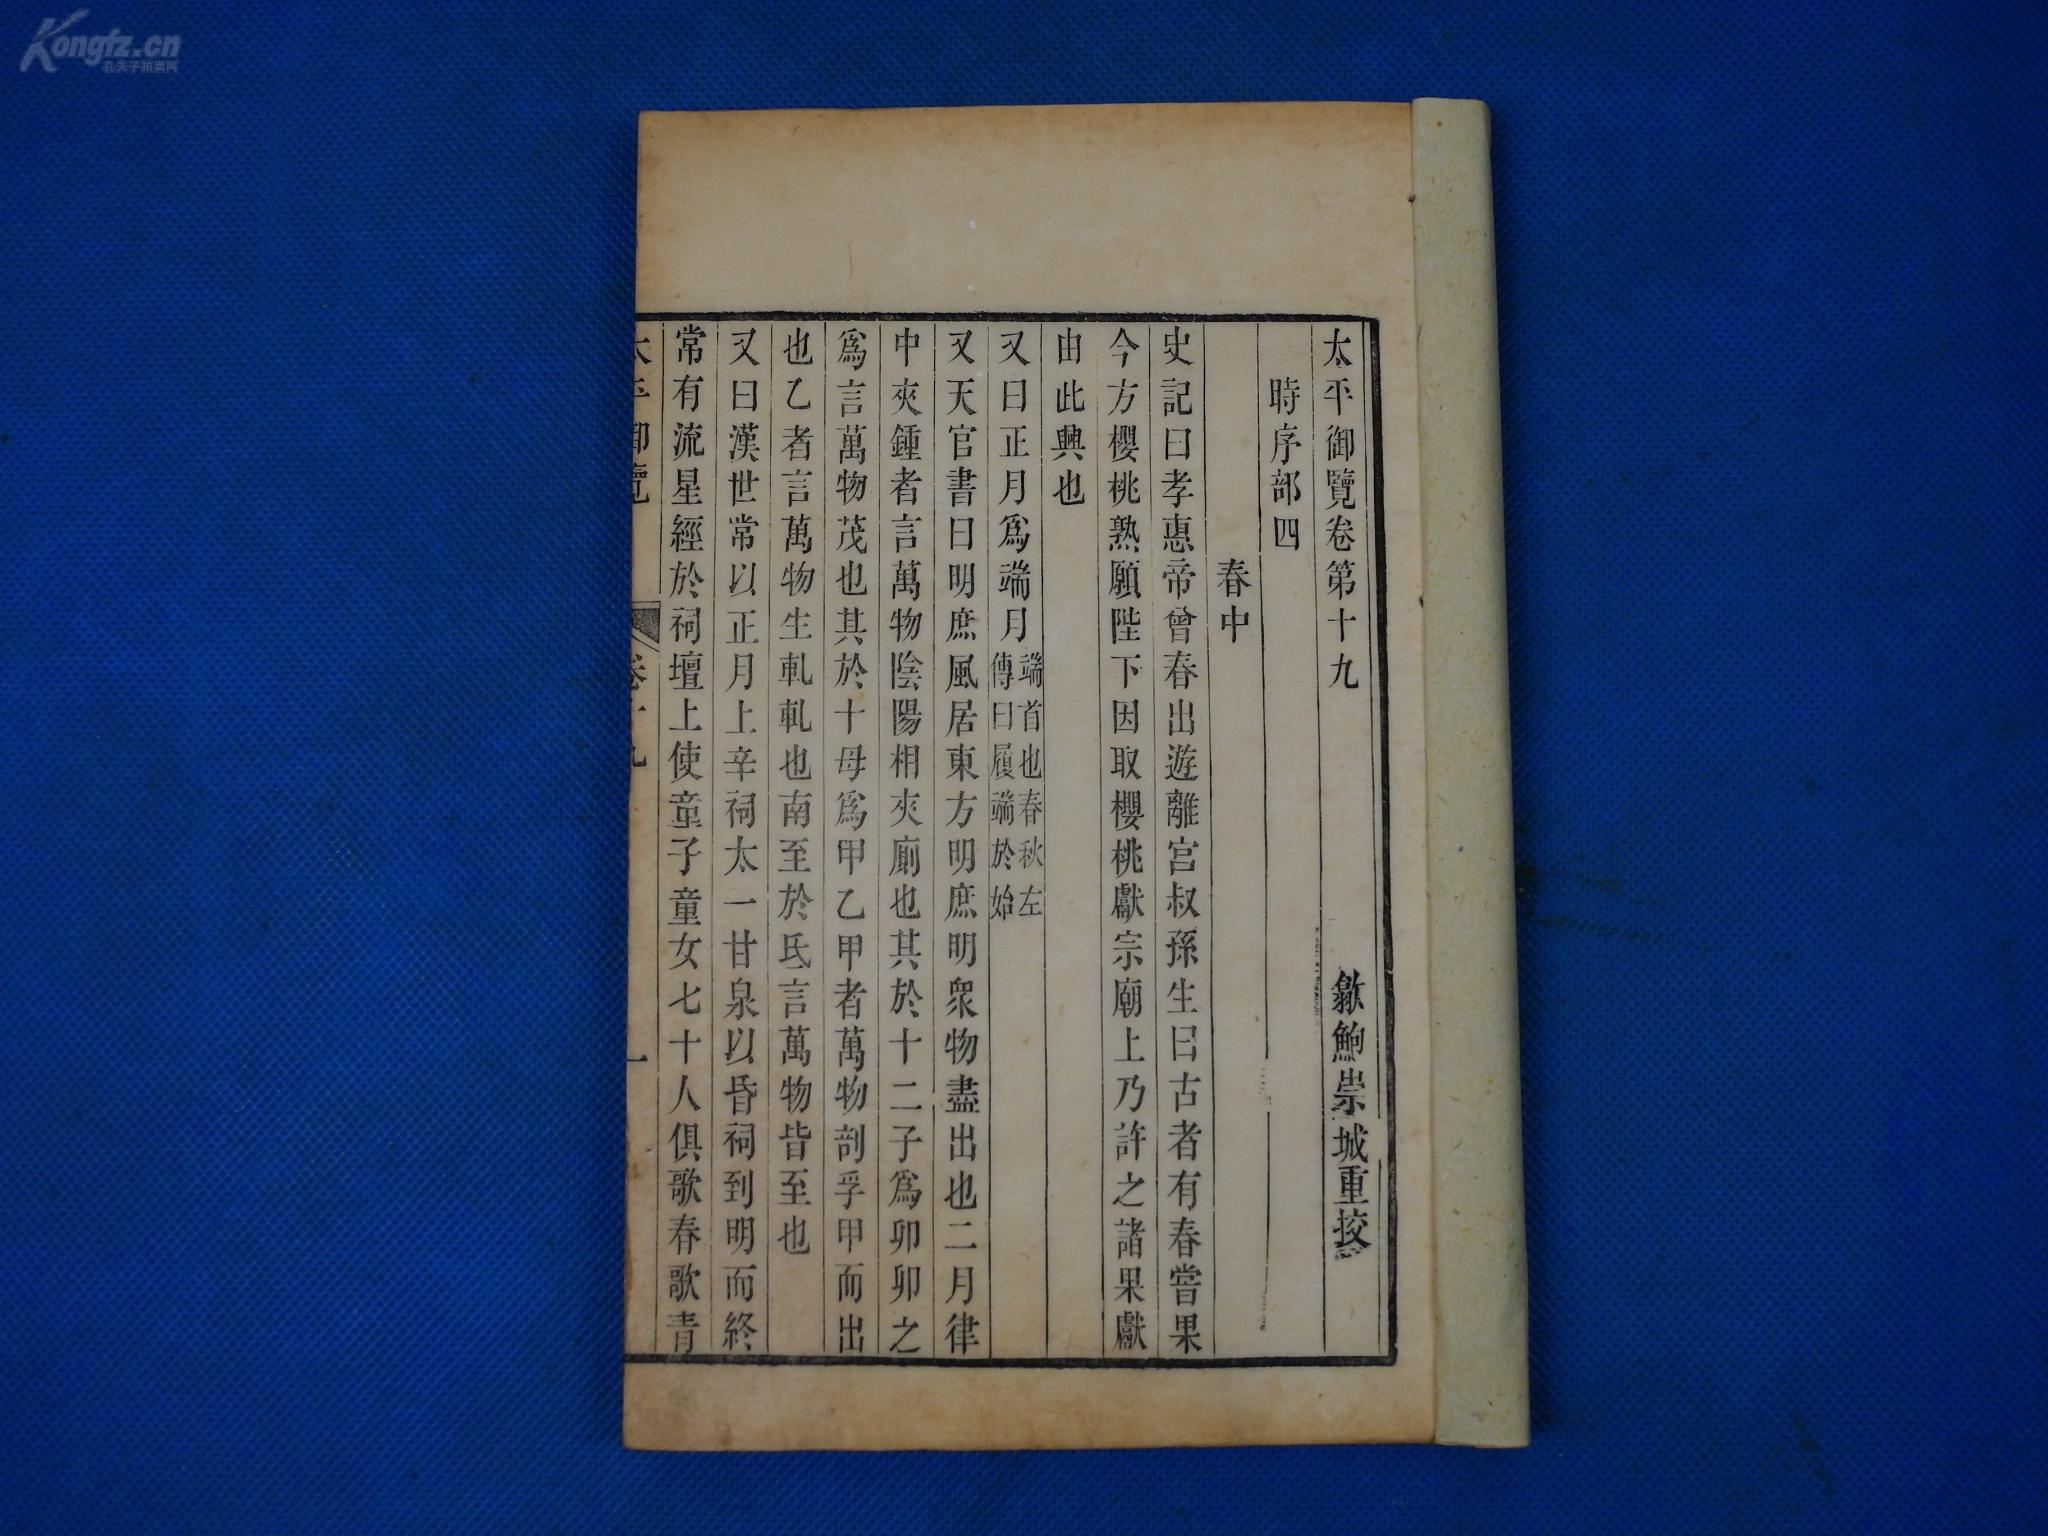 Kongfz.cn
孔夫子拍卖网
太平御覽卷第十九 歙鮑崇城重挍
時序部四
春中
史記曰孝惠帝曾春出遊離宮叔孫生曰古者有春嘗果
今方櫻桃熟願陛下因取櫻桃獻宗廟上乃許之諸果獻
由此興也
又曰正月爲端月端首也春秋左
傳曰履端於始
又天官書曰明庶風居東方明庶明衆物盡出也二月律
中夾鍾者言萬物陰陽相夾廁也其於十二子爲卯卯之
爲言萬物茂也其於十母爲甲乙甲者萬物剖孚甲而出
也乙者言萬物生軋軋也南至於氐言萬物皆至也
又曰漢世常以正月上辛祠太一甘泉以昏祠到明而終
常有流星經於祠壇上使童子童女七十人俱歌春歌青
太平御覽 卷十九 一